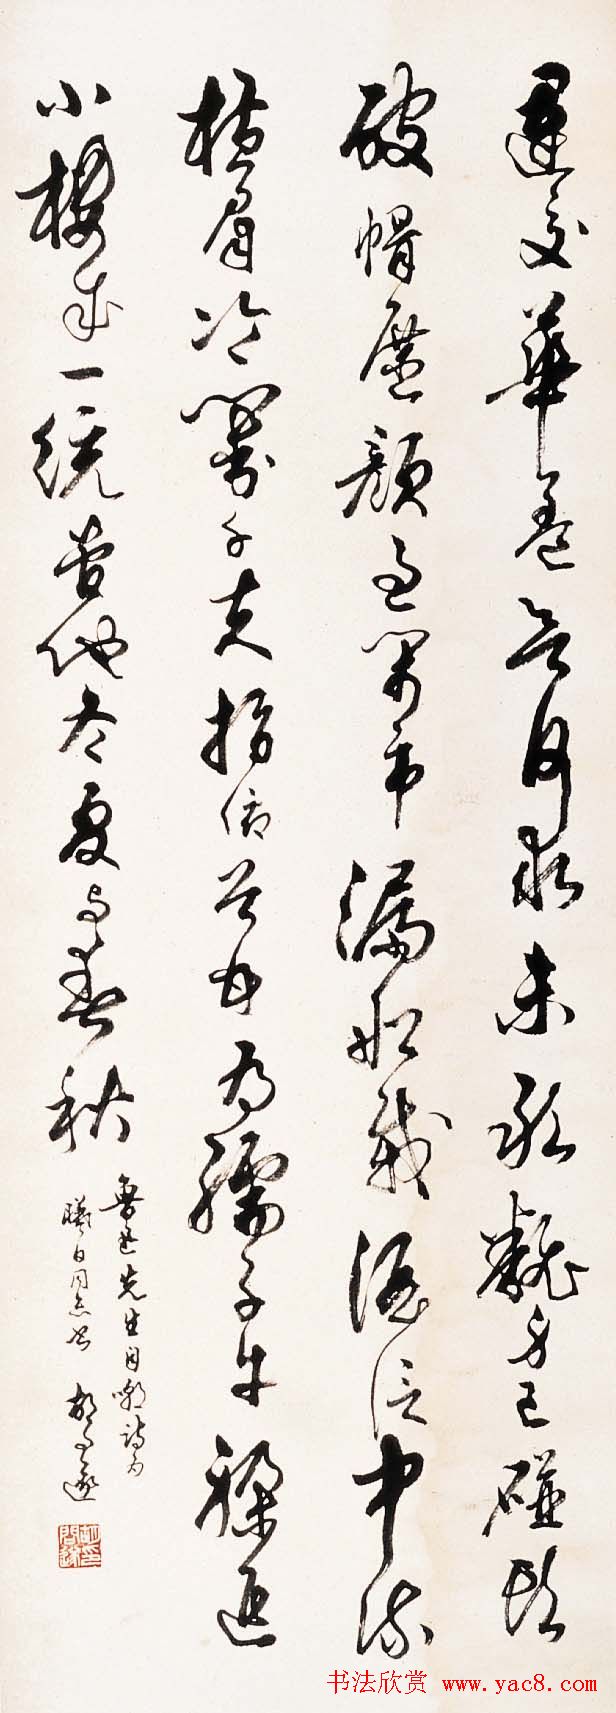 運交華蓋欲何求未敢飜身已碰頭
破帽遮顏過鬧市漏船載酒泛中流
橫眉冷對千夫指俯首甘為孺子牛躲進
小樓成一統管他冬夏與春秋
魯迅先生自嘲詩為
曦白同志書 胡問遂
书法欣赏 www.yac8.com